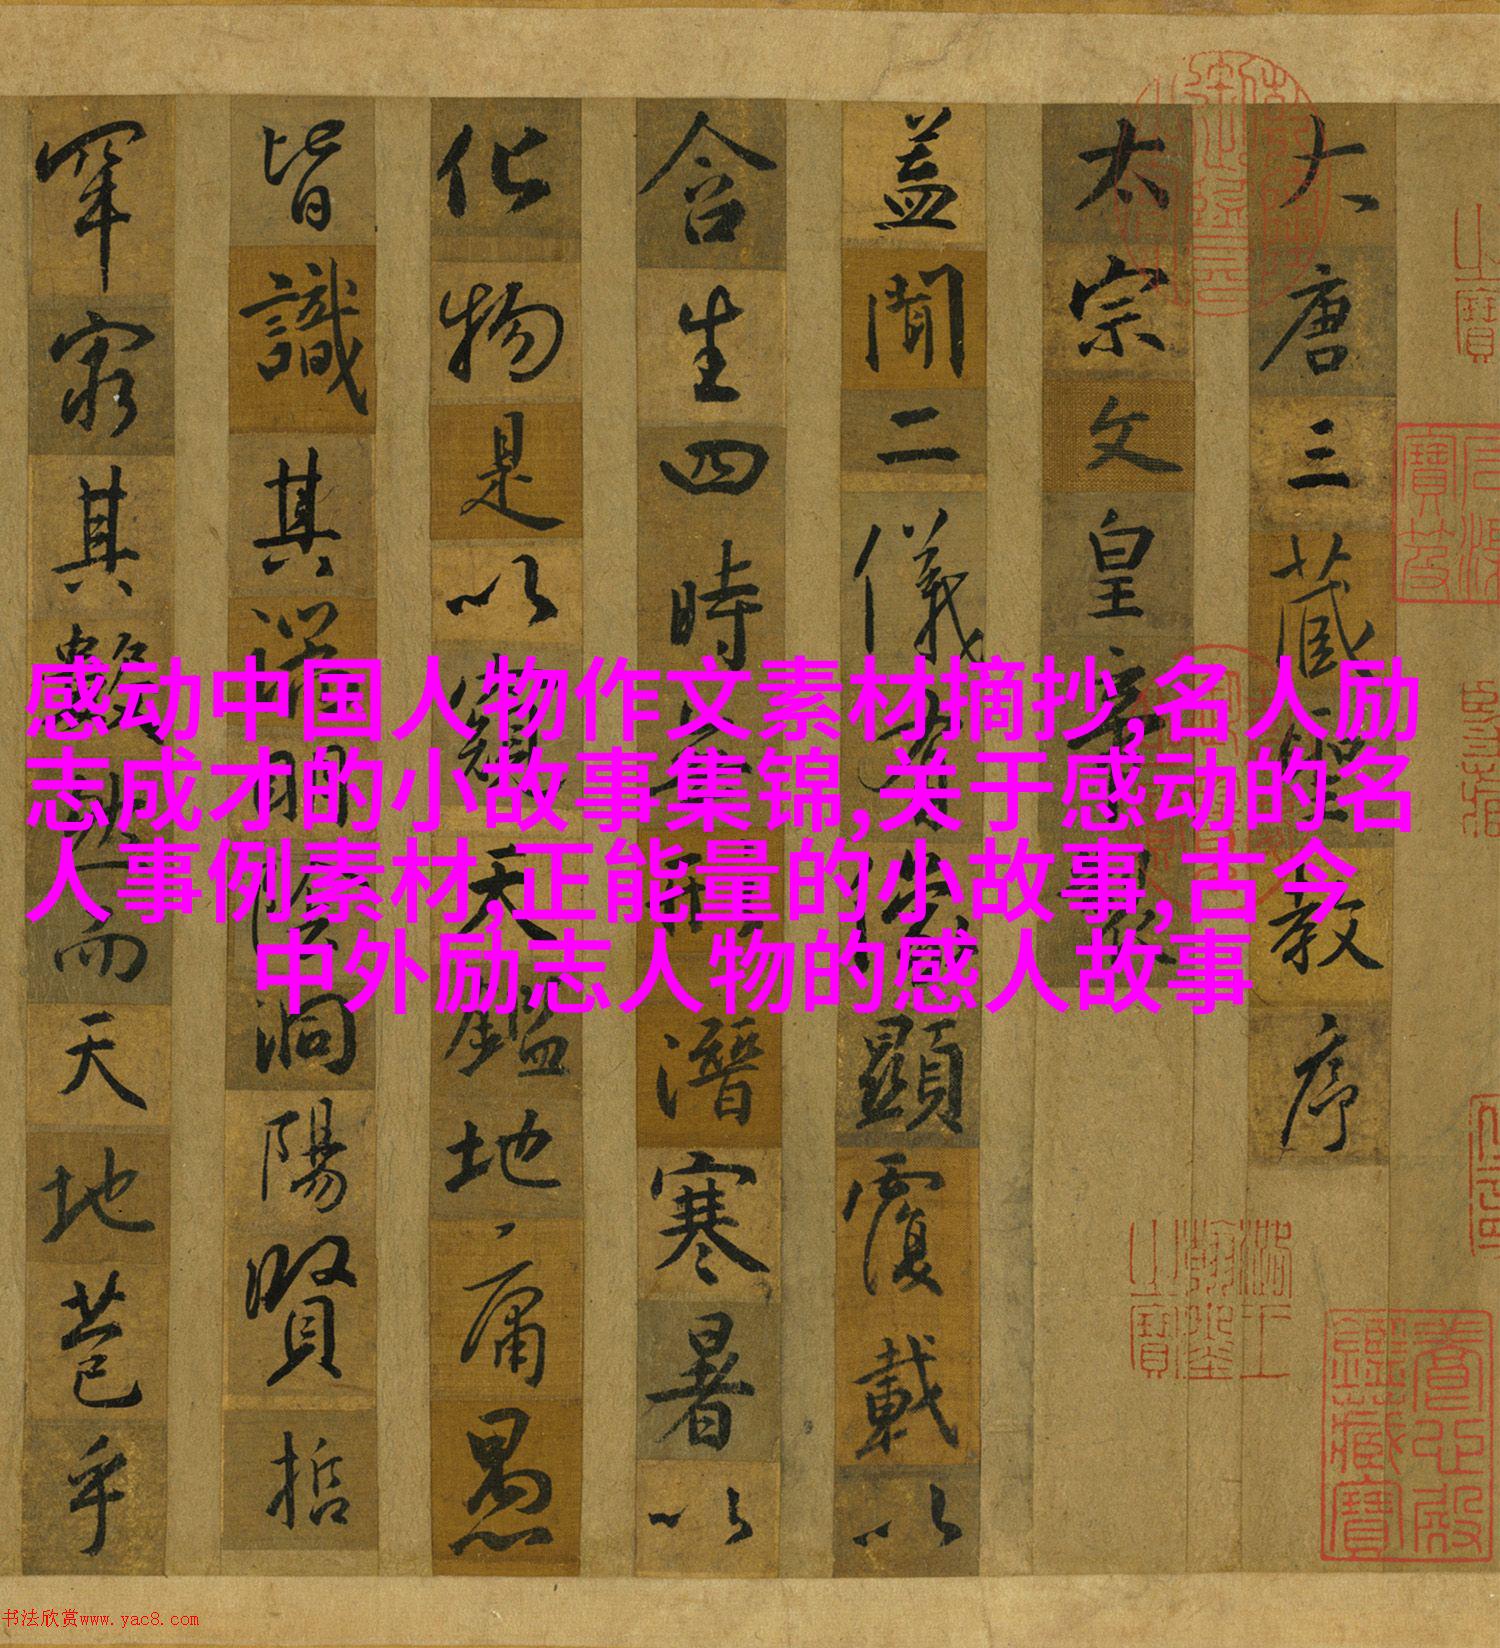 大唐三藏聖教序
太宗文皇帝
蓋聞二儀有顯覆載以
含生四時潛寒暑以
化物是以窺天鑑地庸愚
皆識其端明陰洞陽賢哲
罕窮其數而天地苞乎
感动中国人物作文素材摘抄,名人励
志成才的小故事集锦,关于感动的名
人事例素材,正能量的小故事,古今
中外励志人物的感人故事
養心殿鑑藏寶
书法欣赏www.yac8.com